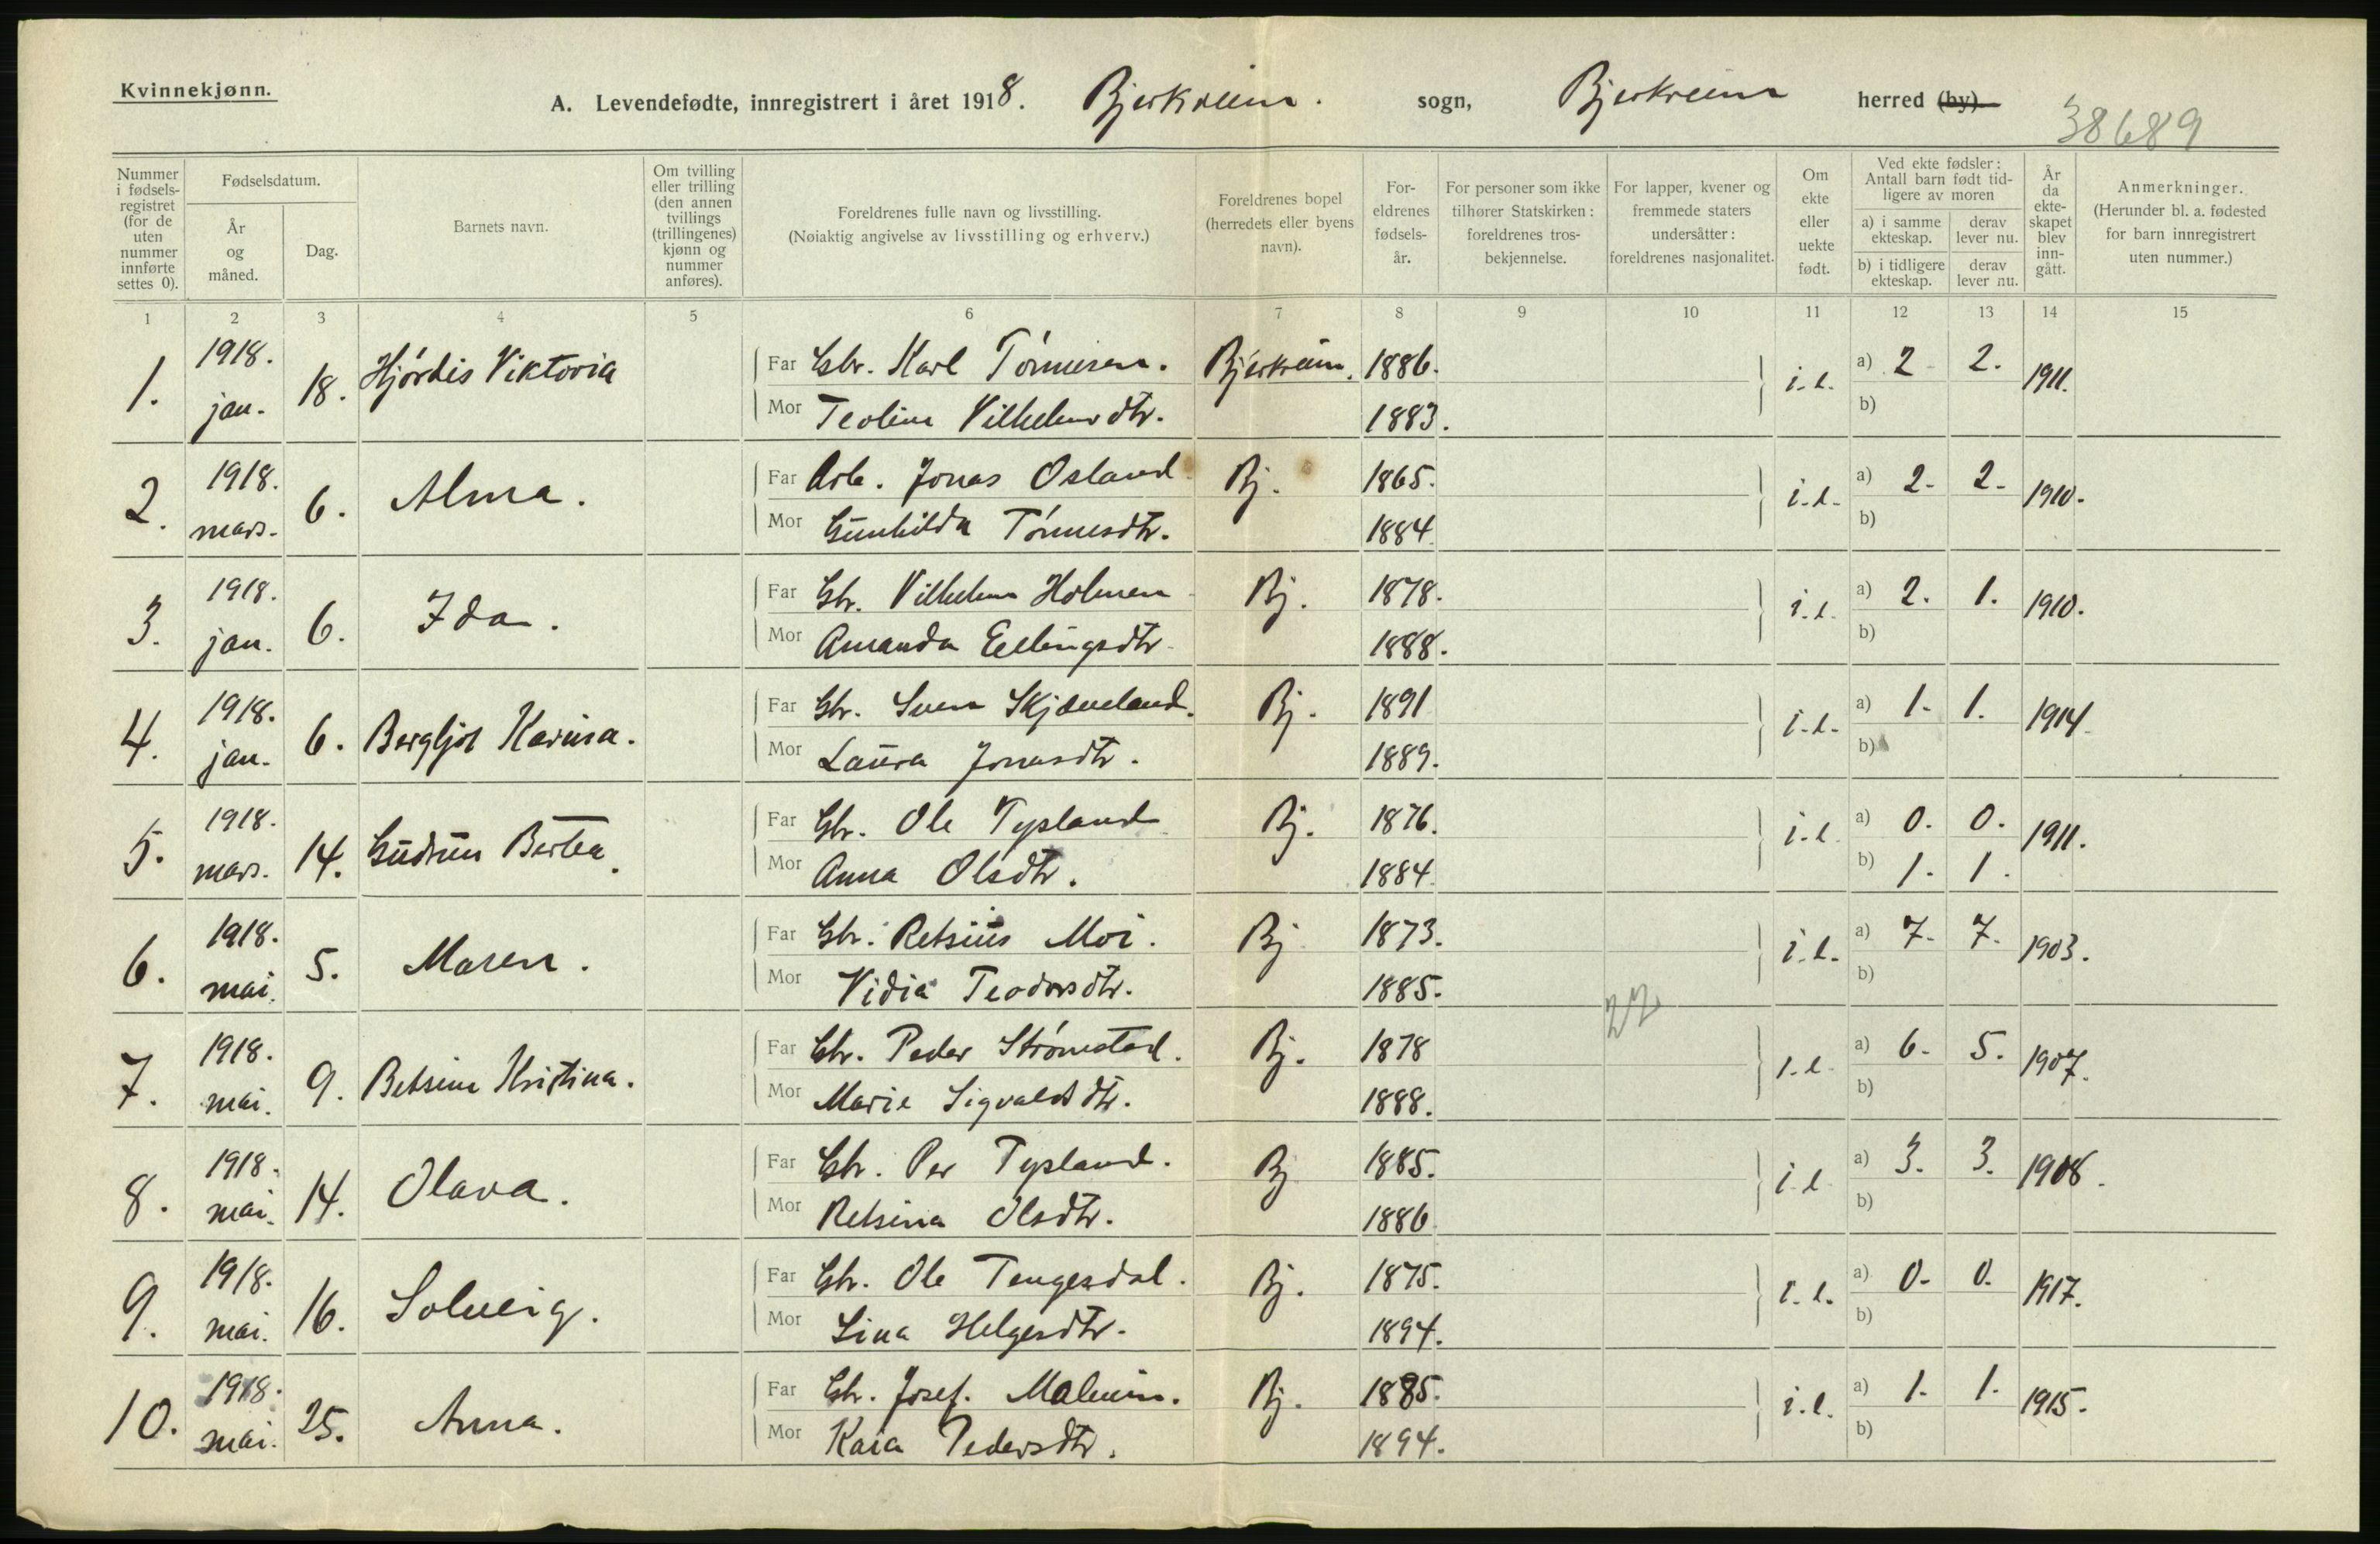 Kvinnekjønn.
A. Levendefødte, innregistrert i året 1918. Bjerkreim. sogn, Bjerkreim herred (by).
38689
Nummer i fødsels-registret (for de uten nummer innførte settes 0).
Fødselsdatum.
År og måned.
Dag.
Barnets navn.
Om tvilling eller trilling (den annen tvillings (trillingenes) kjønn og nummer anføres).
Foreldrenes fulle navn og livsstilling. (Nøiaktig angivelse av livsstilling og erhverv.)
Foreldrenes bopel (herredets eller byens navn).
For-eldrenes fødsels-år.
For personer som ikke tilhører Statskirken: foreldrenes tros-bekjennelse.
For lapper, kvener og fremmede staters undersåtter: foreldrenes nasjonalitet.
Om ekte eller uekte født.
Ved ekte fødsler: Antall barn født tid-ligere av moren
a) i samme ekteskap.
derav lever nu.
b) i tidligere ekteskap.
derav lever nu.
År da ekte-skapet blev inn-gått.
Anmerkninger. (Herunder bl. a. fødested for barn innregistrert uten nummer.)
1 2 3 4 5 6 7 8 9 10 11 12 13 14 15
1. 1918. jan. 18. Hjórdis Viktoria
Far Gbr. Karl Tónnesen. Bjerkreim. 1886. i.e. a) 2 2. 1911.
Mor Teolina Vilhelmsdtr. 1883. b)
2. 1918. mars. 6. Alma.
Far Arb. Jonas Osland Bj. 1865. i.e. a) 2. 2. 1910.
Mor Gunhilda Tónnesdtr. 1884. b)
3. 1918. jan. 6. Ida.
Far Gbr. Vilhelm Holmen Bj. 1878. i.e. a) 2. 1. 1910.
Mor Amanda Ellingsdtr. 1888. b)
4. 1918. jan. 6. Bergljot Karina.
Far Gbr. Sven Skjæveland. Bj. 1891 i.e. a) 1. 1. 1914.
Mor Laura Jonasdtr. 1889. b)
5. 1918. mars. 14. Gudrun Bertea.
Far Gbr. Ole Tysland Bj. 1876. i.e. a) 0. 0. 1911.
Mor Anna Olsdtr. 1884. b) 1. 1.
6. 1918. mai. 5. Maren.
Far Gbr. Retsius Moi. Bj 1873. i.e. a) 7. 7. 1903.
Mor Vidia Teodorsdtr. 1885. b)
22
7. 1918. mai. 9. Betsine Kristina.
Far Gbr. Peder Strómstad. Bj. 1878 i.e. a) 6. 5. 1907.
Mor Marie Sigvaldsdtr. 1888. b)
8. 1918. mai. 14. Olava.
Far Gbr. Per Tysland. Bj 1885. i.e a) 3. 3. 1908.
Mor Retsina Olsdtr. 1886 b)
9. 1918. mai. 16. Solveig.
Far Gbr. Ole Tengesdal. Bj. 1875. i.e. a) 0. 0. 1917.
Mor Lina Helgesdtr. 1894. b)
10. 1918. mai. 25. Anna.
Far Gbr. Josef. Malmin. Bj. 1885. i.e. a) 1. 1. 1915.
Mor Kaia Pedersdtr. 1894. b)